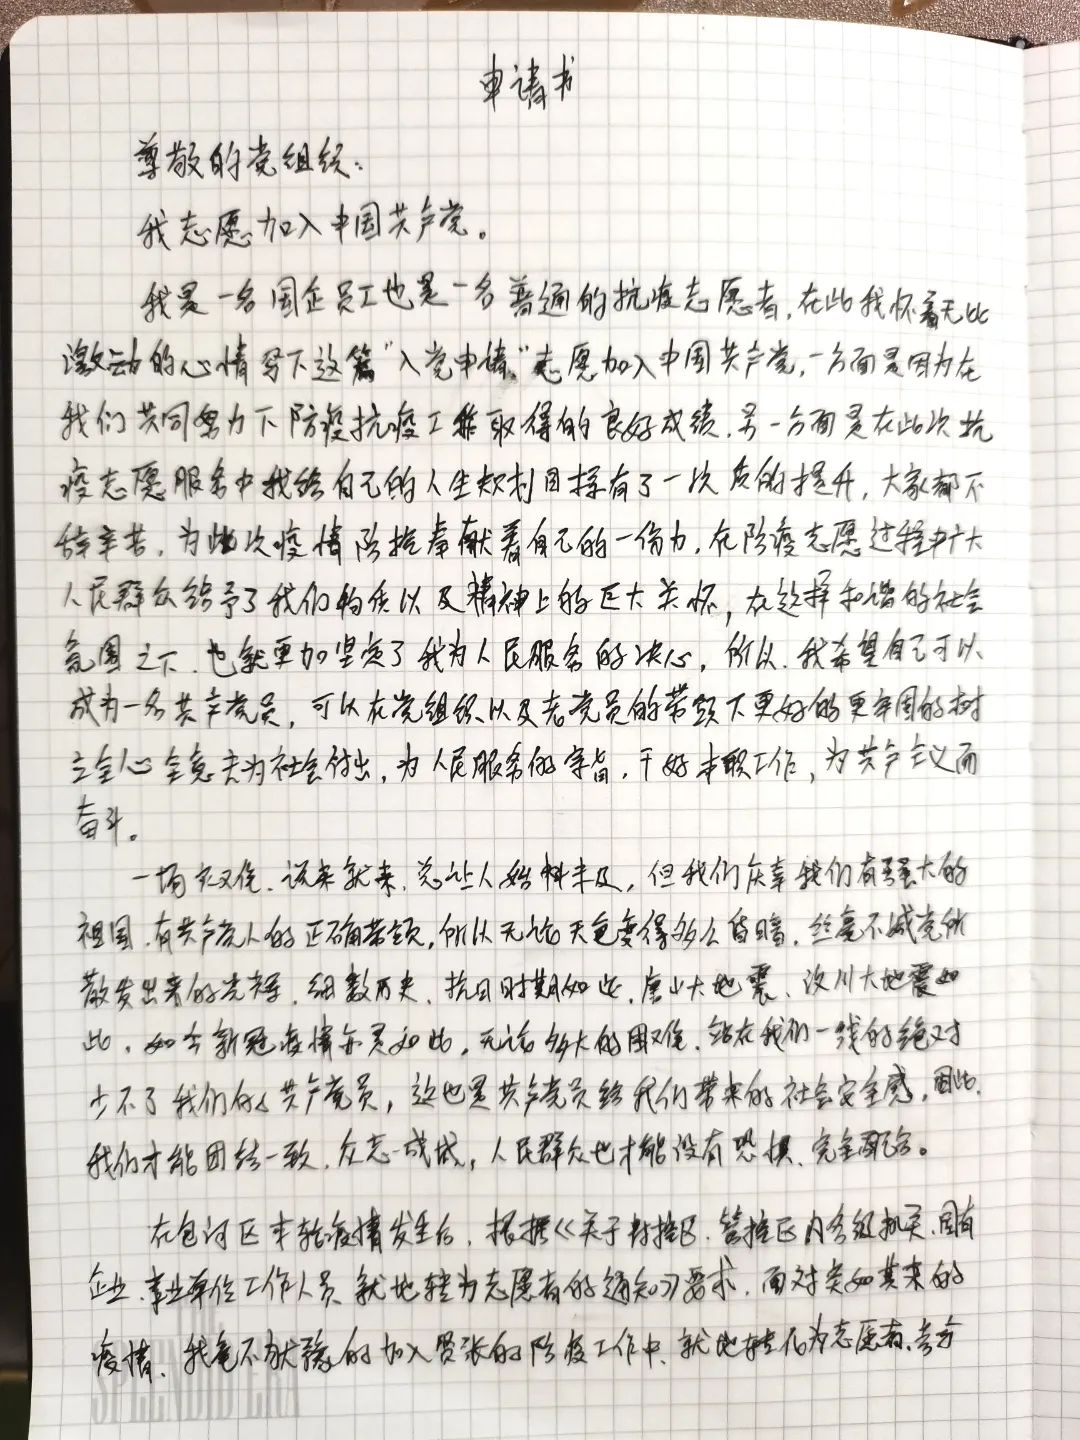 申请书
尊敬的党组织：
我志愿加入中国共产党。
我是一名国企员工也是一名普通的抗疫志愿者，在此我怀着无比
激动的心情写下这篇“入党申请”志愿加入中国共产党，一方面是因为在
我们共同努力下防疫抗疫工作取得的良好成绩，另一方面是在此次抗
疫志愿服务中我给自己的人生规划目标有了一次质的提升，大家都不
辞辛苦，为此次疫情防控奉献着自己的一份力，在防疫志愿过程中广大
人民群众给予了我们物质以及精神上的巨大关怀，在这样和谐的社会
氛围之下，也就更加坚定了我为人民服务的决心，所以，我希望自己可以
成为一名共产党员，可以在党组织以及老党员的带领下更好的更牢固的树
立全心全意为社会付出，为人民服务的宗旨，干好本职工作，为共产主义而
奋斗。
一场灾难，说来就来，总让人始料未及，但我们庆幸我们有强大的
祖国，有共产党人的正确带领，所以无论天色变得多么昏暗，丝毫不减党所
散发出来的光辉，细数历史，抗日时期如此，唐山大地震、汶川大地震如
此，如今新冠疫情亦是如此，无论多大的困难，站在我们一线的绝对
少不了我们的共产党员，这也是共产党员给我们带来的社会安全感，因此，
我们才能团结一致，众志成城，人民群众也才能没有恐惧，完全配合。
在包河区本轮疫情发生后，根据《关于封控区、管控区内各级机关、国有
企业、事业单位工作人员就地转为志愿者的通知》要求，面对突如其来的
疫情，我毫不犹豫的加入紧张的防疫工作中，就地转化为志愿者，
SPLENDID ERA